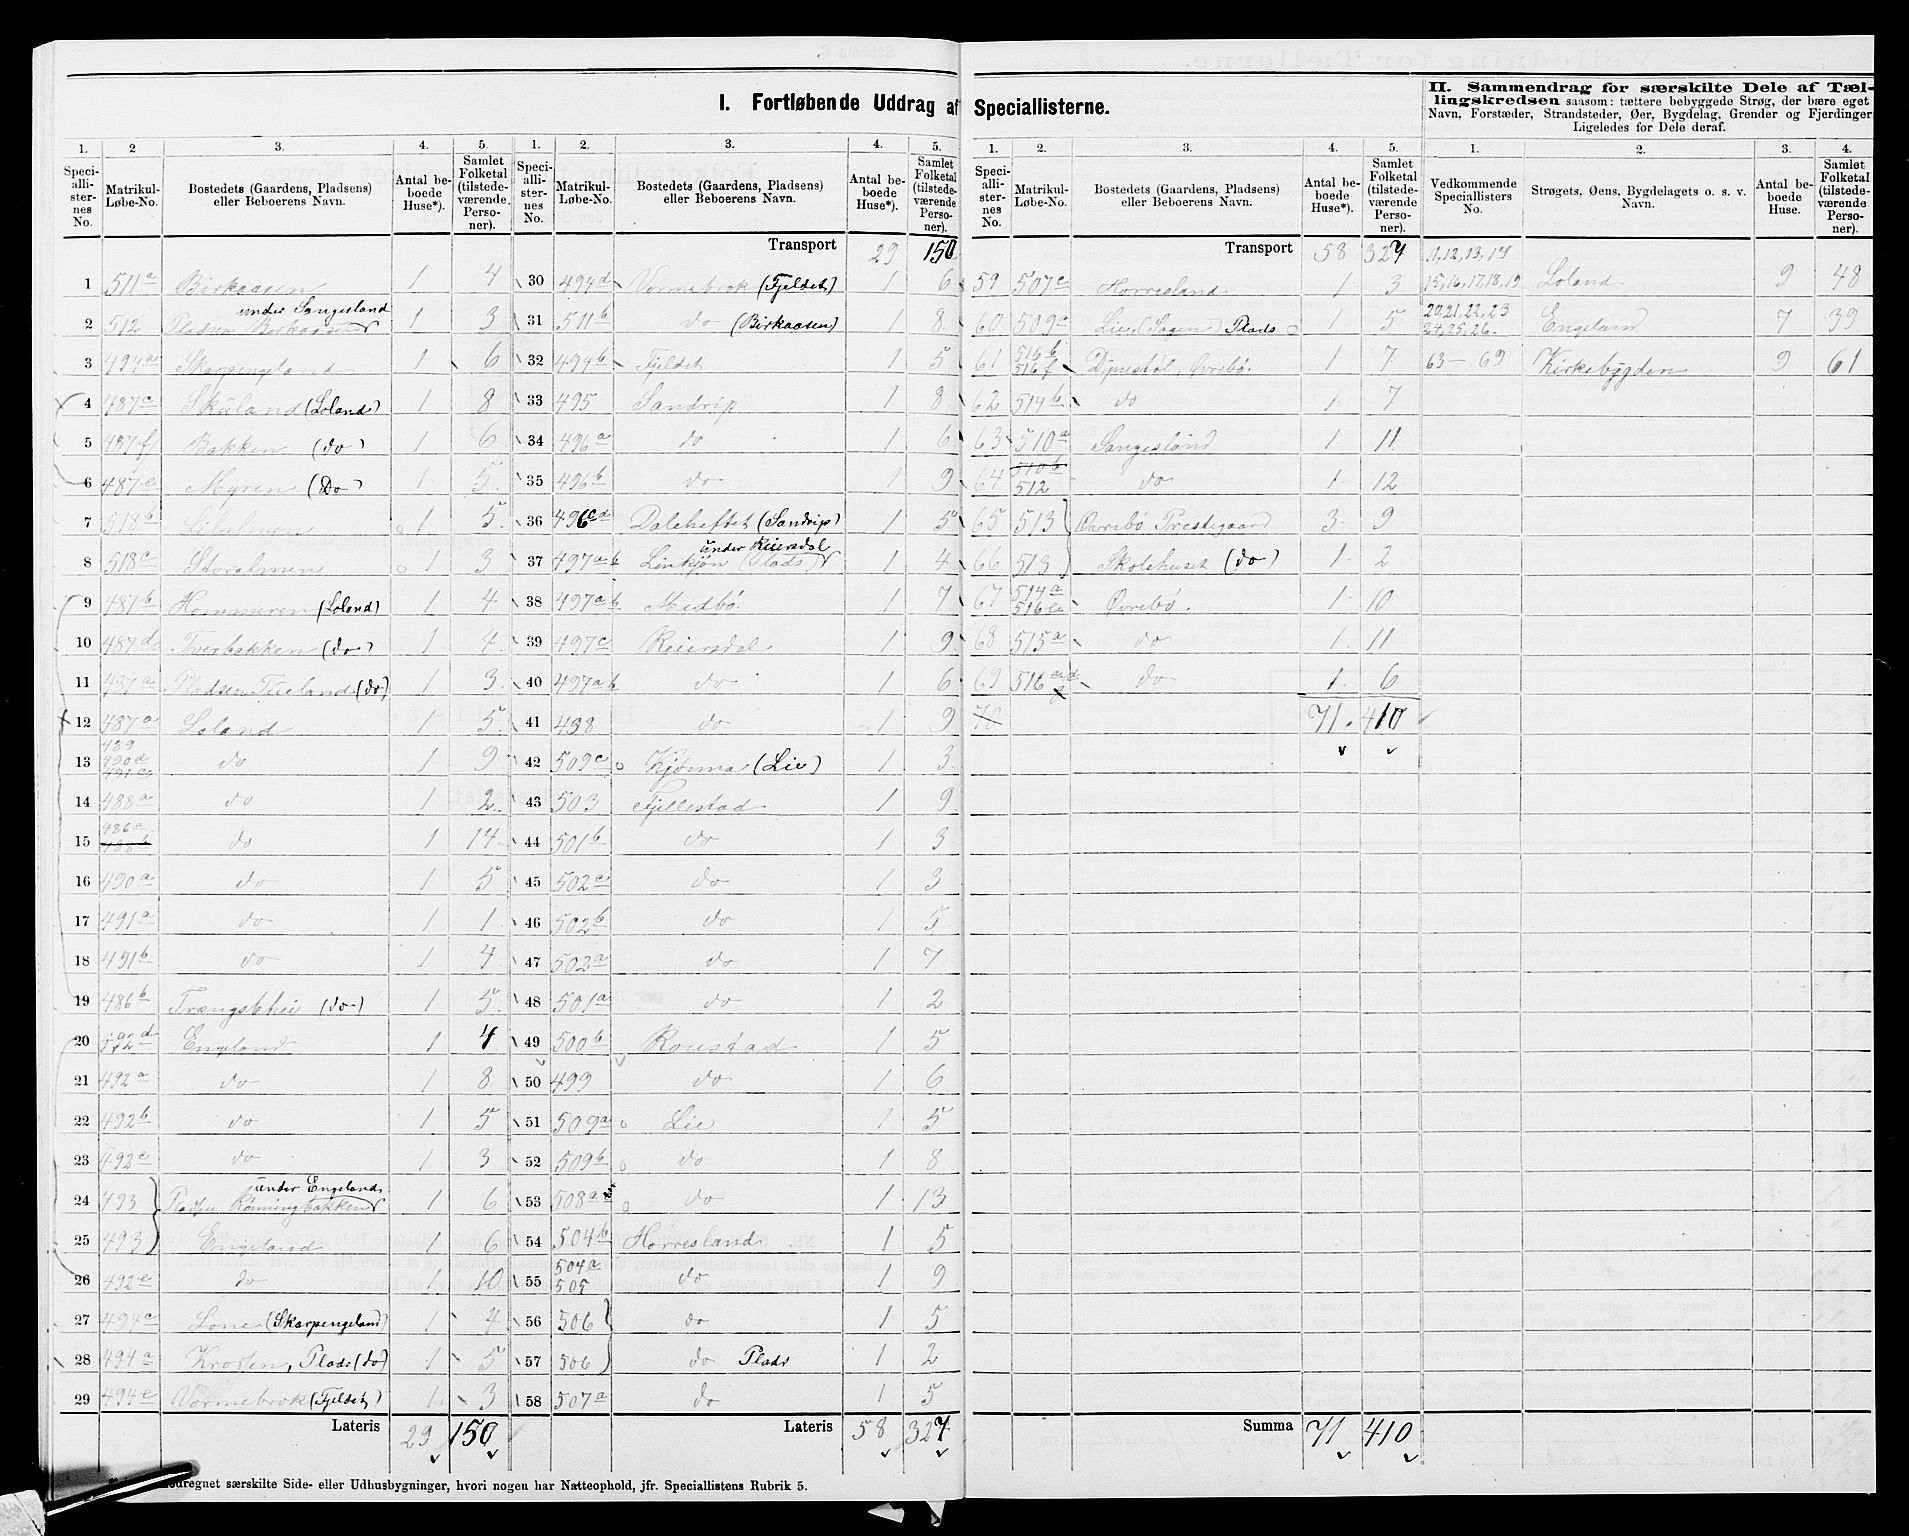 I. Fortløbende Uddrag af Speciallisterne.
II. Sammendrag for særskilte Dele af Tæl-
lingskredsen saasom: tættere bebyggede Strøg, der bære eget
Navn, Forstæder, Strandsteder, Øer, Bygdelag, Grender og Fjerdinger.
Ligeledes for Dele deraf.
1. 2 3. 4. 5.
Speci-alli-ster-nes No. Matrikul-Løbe-No. Bostedets (Gaardens, Pladsens) eller Beboerens Navn. Antal be-boede Huse*). Samlet Folketal (tilstede-værende Perso-ner).
1 511a Birkaasen 1 4
2 512 Pladsen Birkaasen under Sangesland 1 3
3 494a Skarpengland 1 6
4 487c Skuland (Loland) 1 8
5 487f Bakken (do) 1 6
6 487e Myren (Do) 1 5
7 518b Lilalmen 1 5
8 518c Storalmen 1 3
9 487b Hommeren (Loland) 1 4
10 487d Tverbakken (do) 1 4
11 487a Pladsen Tueland (do) 1 3
12 487a Loland 1 5
13 489 490d 491c do 1 9
14 488a do 1 2
15 486a do 1 14
16 490a do 1 5
17 491a do 1 1
18 491b do 1 4
19 486b (do) 1 5
20 492d Engeland 1 4
21 492a do 1 8
22 492b do 1 5
23 492c do 1 3
24 493 Pladsen Rønningbakken under Engeland 1 6
25 493 Engeland 1 6
26 492e do 1 10
27 494c Lone (Skarpengeland) 1 4
28 494a Krossen, Plads (do) 1 5
29 494e Vormebrok (Fjeldet) 1 3
Lateris 29 150
1. 2. 3. 4. 5.
Speci-alli-ster-nes No. Matrikul-Løbe-No. Bostedets (Gaardens, Pladsens) eller Beboerens Navn. Antal be-boede Huse*). Samlet Folketal (tilstede-værende Perso-ner).
Transport 29 150
30 494d Vormebrok (Fjeldet) 1 6
31 511b do (Birkaasen) 1 8
32 494b Fjeldet 1 5
33 495 Sandrip 1 8
34 496a do 1 6
35 496b do 1 9
36 496cd Daleheftet (Sandrip) 1 5
37 497ab Linkjøn (Plads) under Reiersdal 1 4
38 497ab Medbø 1 7
39 497c Reiersdal 1 9
40 497ab do 1 6
41 498 do 1 9
42 509c Kjønna (Lie) 1 3
43 503 Fjellestad 1 9
44 501b do 1 3
45 502c do 1 3
46 502b do 1 5
47 502a do 1 7
48 501a do 1 2
49 500b Roustad 1 5
50 499 do 1 6
51 509a Lie 1 5
52 509b do 1 8
53 508a do 1 13
54 504b Horresland 1 5
55 504a 505 do 1 9
56 506 do 1 5
57 506 do Plads 1 2
58 507a do 1 5
Lateris 58 327
1. 2. 3. 4. 5.
Speci-alli-ster-nes No. Matrikul-Løbe-No. Bostedets (Gaardens, Pladsens) eller Beboerens Navn. Antal be-boede Huse*). Samlet Folketal (tilstede-værende Perso-ner).
Transport 58 327
59 507c Horresland 1 3
60 509c Lien (Sagen) Plads 1 5
61 516b 516f Dynestøl, Øvrebø 1 7
62 514b do 1 7
63 510a Sangesland 1 11
64 510b 512 do 1 12
65 513 Øvrebö Prestegaard 3 9
66 513 Skolehuset (do) 1 2
67 514a Øvrebø 1 10
68 515a do 1 11
69 516 do 1 6
70 71 410
Summa 71 410
1. 2. 3. 4.
Vedkommende Speciallisters No. Strøgets, Øens, Bygdelagets o. s. v. Navn. Antal be-boede Huse. Samlet Folketal (tilstede-værende Perso-ner).
11, 12, 13, 14
15, 16, 17, 18, 19 Loland 9 48
20, 21, 22, 23
24, 25, 26. Engeland 7 39
63 - 69 Kirkebygden 9 61
medregnet særskilte Side- eller Udhusbygninger, hvori nogen har Natteophold, jfr. Speciallistens Rubrik 5.